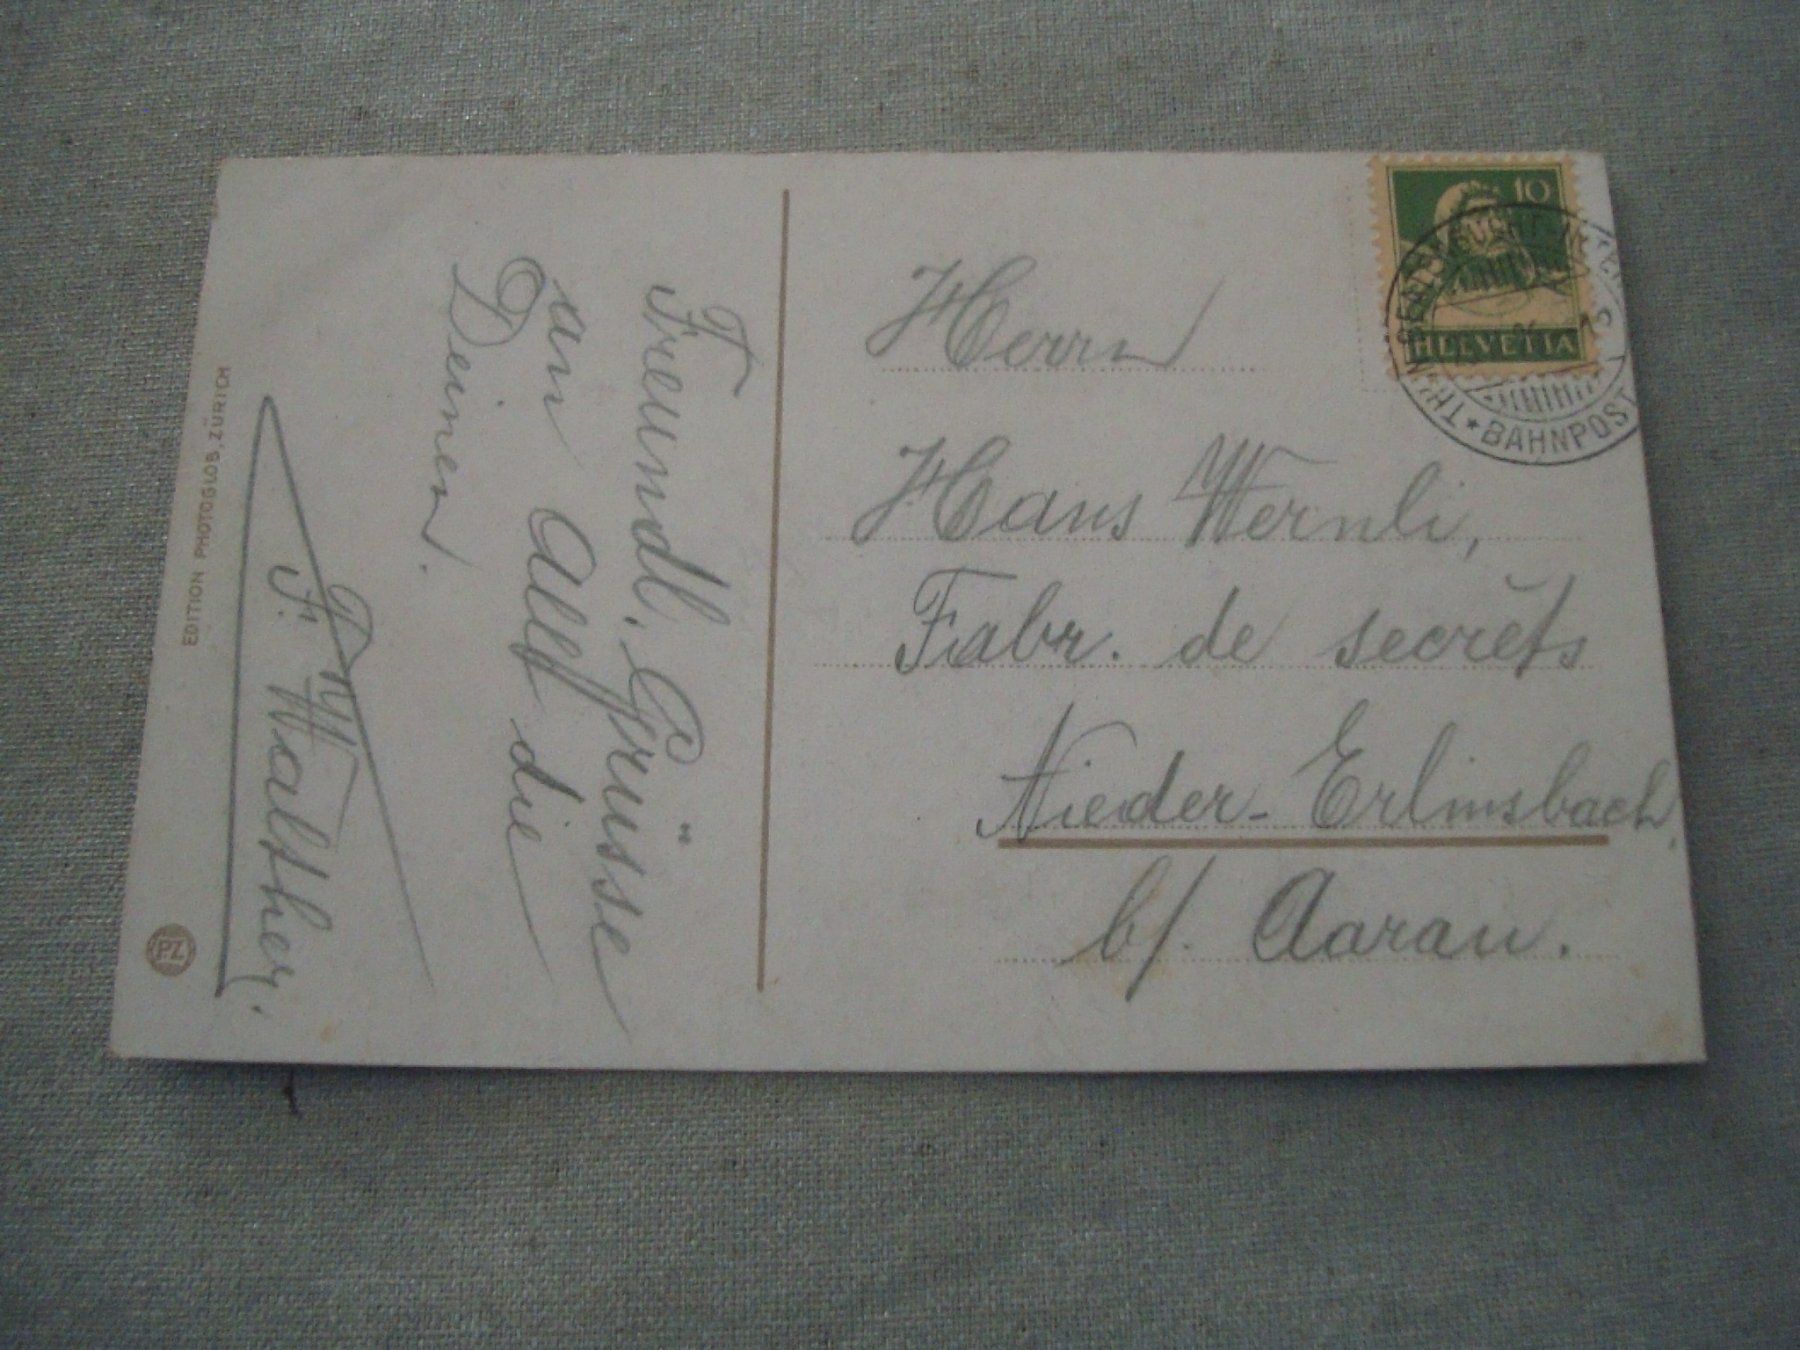 Freundl. Grüsse
an All die
Deinen.
F. W. Walther.
EDITION PHOTOGLOB, ZÜRICH
PZ
10
HELVETIA
BAHNPOST
Herrn
Hans Wernli,
Fabr. de secrèts
Nieder-Erlinsbach,
b/. Aarau.